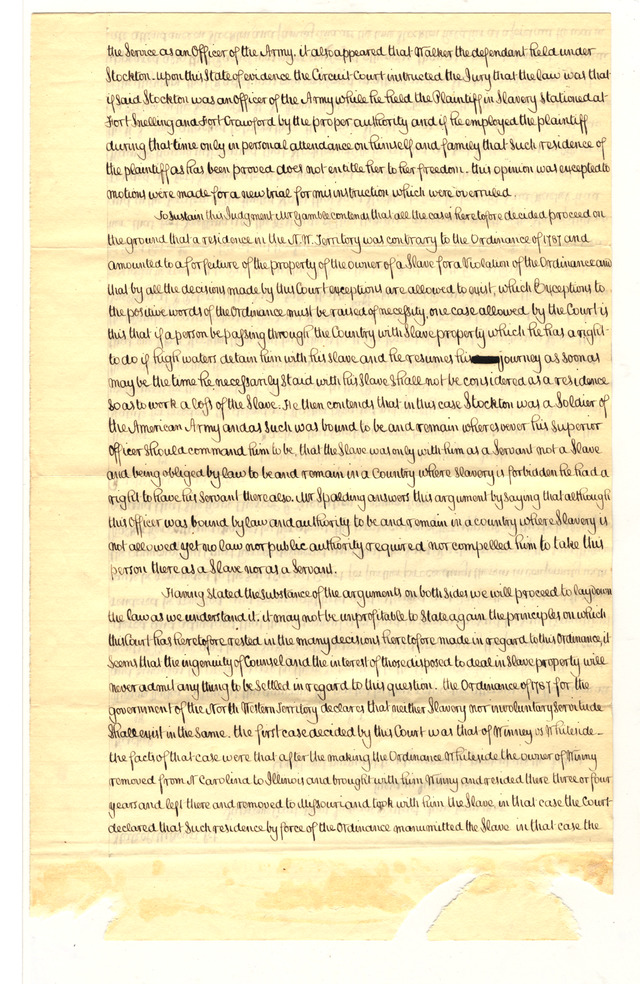 the Service as an Officer of the Army. it also appeared that Walker the defendant held under
Stockton. upon this State of evidence the Circuit Court instructed the Jury that the law was that
if Said Stockton was an Officer of the Army while he held the Plaintiff in Slavery Stationed at
Fort Snelling and Fort Crawford by the proper authority and if he employed the plaintiff
during that time only in personal attendance on himself and family that Such residence of
the plaintiff as has been proved does not entitle her to her freedom. this opinion was excepted to
motions were made for a new trial for mis instruction which were overruled.
To Sustain this Judgment Mr Gamble contends that all the cases heretofore decided proceed on
the ground that a residence in the N.W. Territory was contrary to the Ordinance of 1787 and
amounted to a forfeiture of the property of the owner of a Slave for a Violation of the Ordinance and
that by all the decisions made by this Court exceptions are allowed to exist which Exceptions to
the positive words of the Ordinance must be raised of necessity, one case allowed by the Court is
this that if a person be passing through the Country with Slave property which he has a right
to do if high waters detain him with his Slave and he resumes his journey as soon as
may be the time he necessarily Staid with his Slave Shall not be considered as a residence
So as to work a loss of the Slave. He then contends that in this case Stockton was a Soldier of
the American Army and as such was bound to be and remain wheresoever his Superior
Officer Should command him to be, that the Slave was only with him as a Servant not a Slave
and being obliged by law to be and remain in a Country where Slavery is forbidden he had a
right to have his Servant there also. Mr Spalding answers this argument by saying that although
this Officer was bound by law and authority to be and remain in a country where Slavery is
not allowed yet no law nor public authority required nor compelled him to take this
person there as a Slave nor as a Servant.
Having Stated the Substance of the arguments on both Sides we will proceed to lay down
the law as we understand it. it may not be unprofitable to State again the principles on which
this Court has heretofore rested in the many decisions heretofore made in regard to this Ordinance, it
Seems that the ingenuity of Counsel and the interest of those disposed to deal in Slave property will
never admit any thing to be Settled in regard to this question. the Ordinance of 1787 for the
government of the North Western Territory declares that neither Slavery nor involuntary Servitude
Shall exist in the Same. the first case decided by this Court was that of Winney vs Whiteside
the facts of that case were that after the making the Ordinance Whiteside the owner of Winny
removed from N Carolina to Illinois and brought with him Winny and resided there three or four
years and left there and removed to Missouri and took with him the Slave, in that case the Court
declared that Such residence by force of the Ordinance manumitted the Slave in that case the